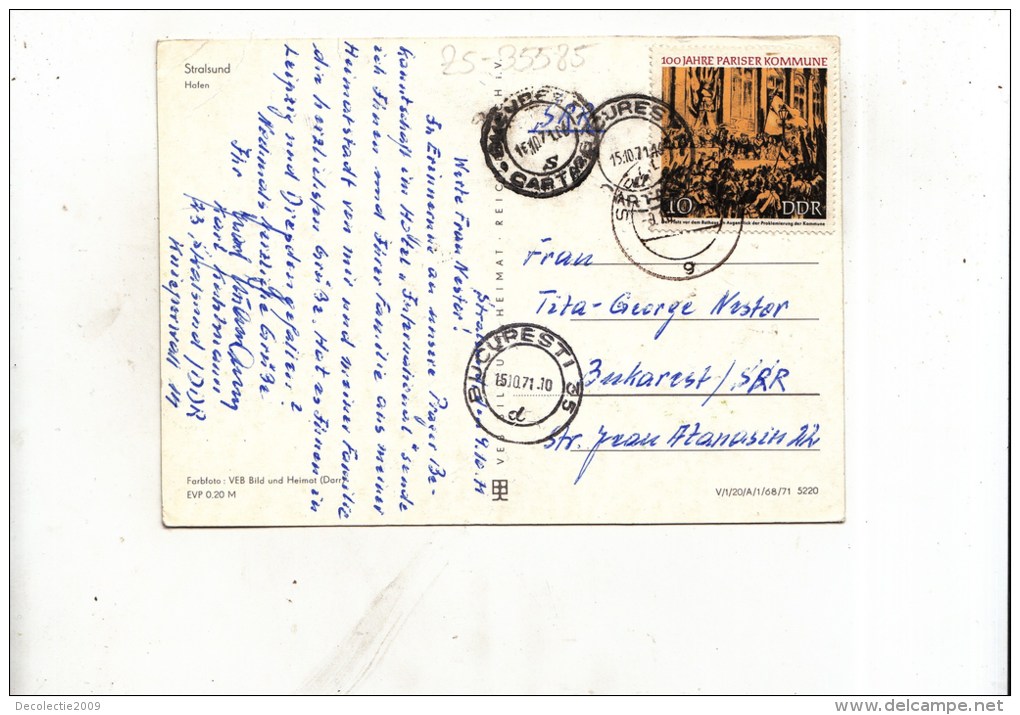 Stralsund
Hafen
25-35585
Stralsund, den 9.10.71
Werte Frau Nestor!
In Erinnerung an unsere Prager Be-
kanntschaft im Hotel „International“ sende
ich Ihnen und Ihrer Familie aus meiner
Heimatstadt von mir und meiner Familie
die herzlichsten Grüße. Hat es Ihnen in
Leipzig und Dresden gefallen?
Nochmals herzliche Grüße
Ihr
Karl
23 Stralsund / DDR
Knieperwall 14
Farbfoto: VEB Bild und Heimat (Darr)
EVP 0.20 M
VEB BILD UND HEIMAT · REICHENBACH I. V.
SRR
100 JAHRE PARISER KOMMUNE
10 DDR
Platz vor dem Rathaus im Augenblick der Proklamierung der Kommune
BUCURESTI
16.10.71
S
CARTARE
BUCURESTI
15.10.71
CARTARE
g
BUCURESTI 35
15.10.71.10
d
Frau
Tita-George Nestor
Bukarest / SRR
Str. Jean Atanasiu 22
V/1/20/A/1/68/71 5220
Decolectie2009
www.delcampe.net